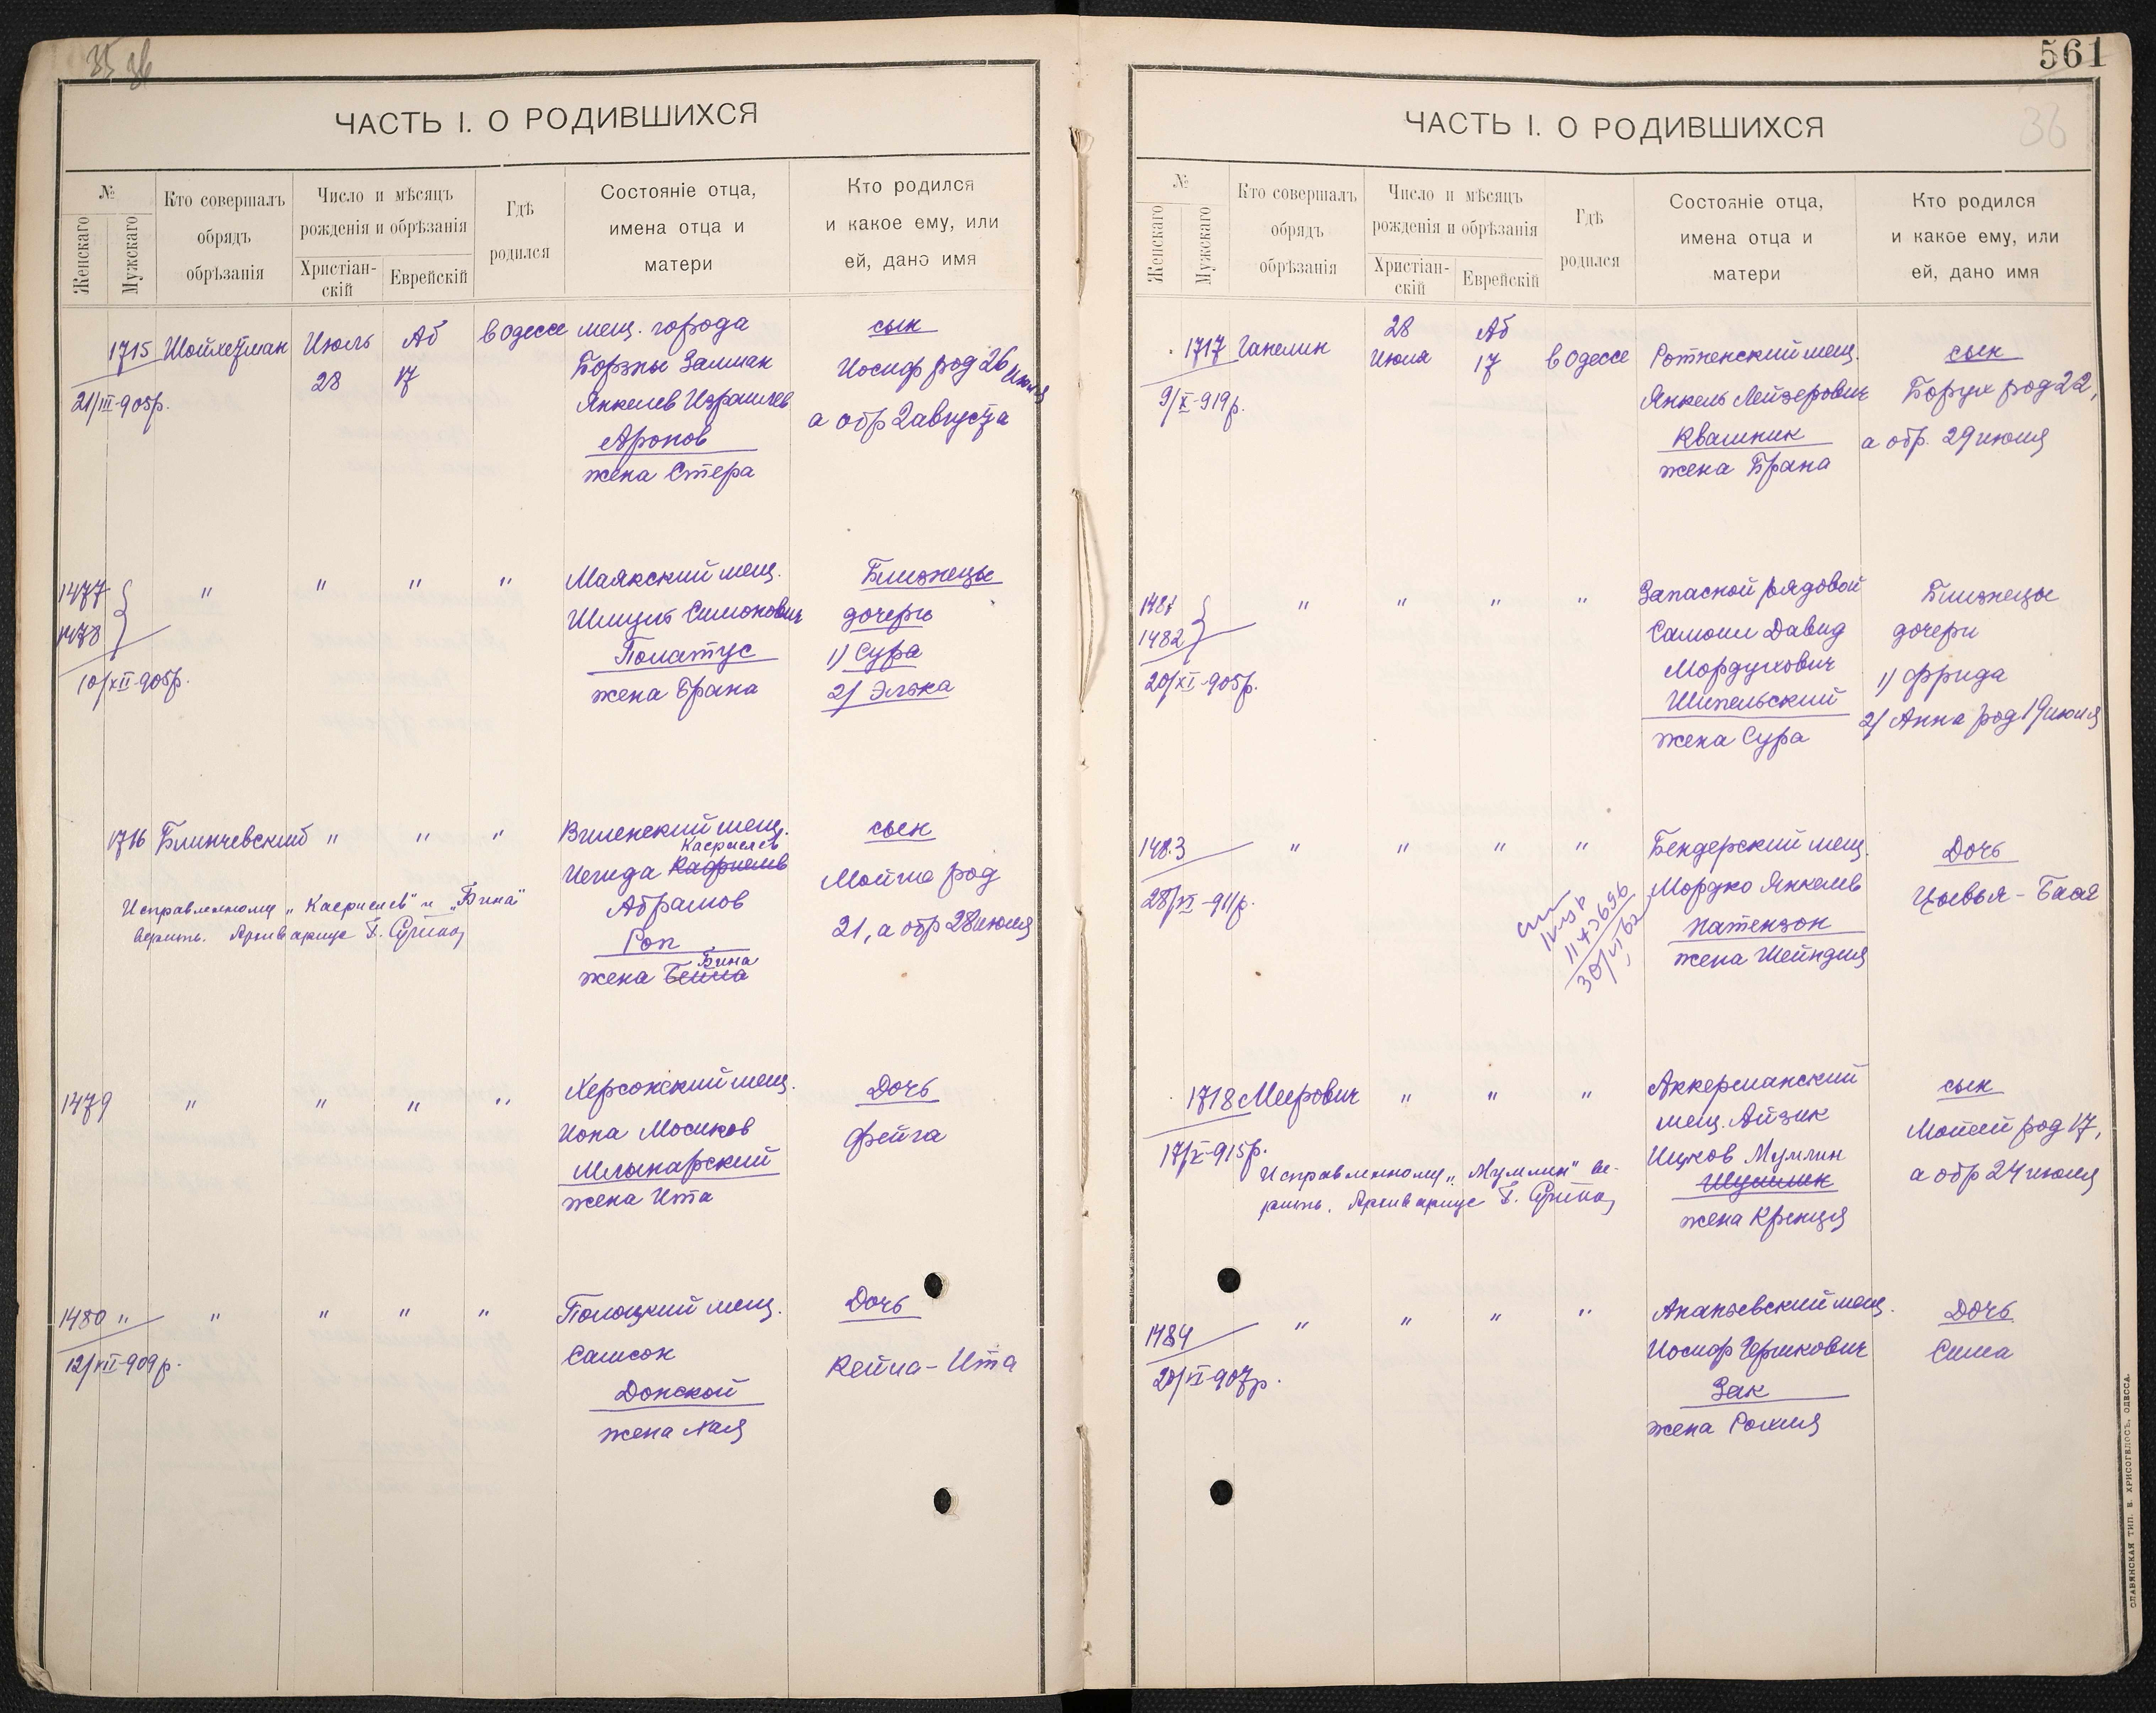 35 36
ЧАСТЬ I. О РОДИВШИХСЯ
№
Женскаго
Мужскаго
Кто совершалъ
обрядъ
обрѣзанія
Число и мѣсяцъ
рожденія и обрѣзанія
Христіан-
скій
Еврейскій
Гдѣ
родился
Состояніе отца,
имена отца и
матери
Кто родился
и какое ему, или
ей, дано имя
1715 Шойхетман Июль 28 Аб 17 в Одессе
21/III-905р.
мещ. города
Борзны Залман
Янкелев Израилев
Аронов
жена Стера
сын
Иосиф род 26 июля
а обр 2 августа
1477
1478
10/XII-905р.
" " " "
Маякский мещ.
Шмуль Симонович
Полатус
жена Брана
Близнецы
дочерь
1) Сура
2) Элька
1716 Блинчевский " " "
Исправленному „Касриелев" и „Бина"
верить. Архивариус
Виленский мещ.
Касриелев
Иегуда Кафриелев
Абрамов
Роп
Бина
жена Бейла
сын
Мойше род
21, а обр 28 июля
1479 " " " "
Херсонский мещ.
Иона Мосиков
Млынарский
жена Ита
Дочь
Фейга
1480 " " " " "
12/VII-909р.
Полоцкий мещ.
Самсон
Донской
жена Хая
Дочь
Кейла-Ита
561
36
ЧАСТЬ I. О РОДИВШИХСЯ
№
Женскаго
Мужскаго
Кто совершалъ
обрядъ
обрѣзанія
Число и мѣсяцъ
рожденія и обрѣзанія
Христіан-
скій
Еврейскій
Гдѣ
родился
Состояніе отца,
имена отца и
матери
Кто родился
и какое ему, или
ей, дано имя
1717 Ганелин 28 Июля Аб 17 в Одессе
9/X-919р.
Ротненский мещ.
Янкель Лейзерович
Квашник
жена Брана
сын
Борух род 22,
а обр. 29 июля
1481
1482
20/XI-905р.
" " " "
Запасной рядовой
Самоил Давид
Мордухович
Шипельский
жена Сура
Близнецы
дочери
1) Фрида
2) Анна род 19 июля
1483 " " " "
28/XI-911р.
1143696
30/VI 62
Бендерский мещ.
Мордко Янкелев
Натензон
жена Шейндля
Дочь
Цивья-Бася
1718 Меерович " " "
17/X-915р.
Исправленному „Мумлин" ве-
рить. Архивариус
Аккерманский
мещ. Айзик
Ицков Мумлин
Шумлин
жена Кренця
сын
Мотей род 17,
а обр 24 июля
1484 " " " "
20/VI-907р.
Ананьевский мещ.
Иосиф Гершкович
Зак
жена Рохля
Дочь
Сима
СЛАВЯНСКАЯ ТИП. Е. ХРИСОГЕЛОСЪ, ОДЕССА.